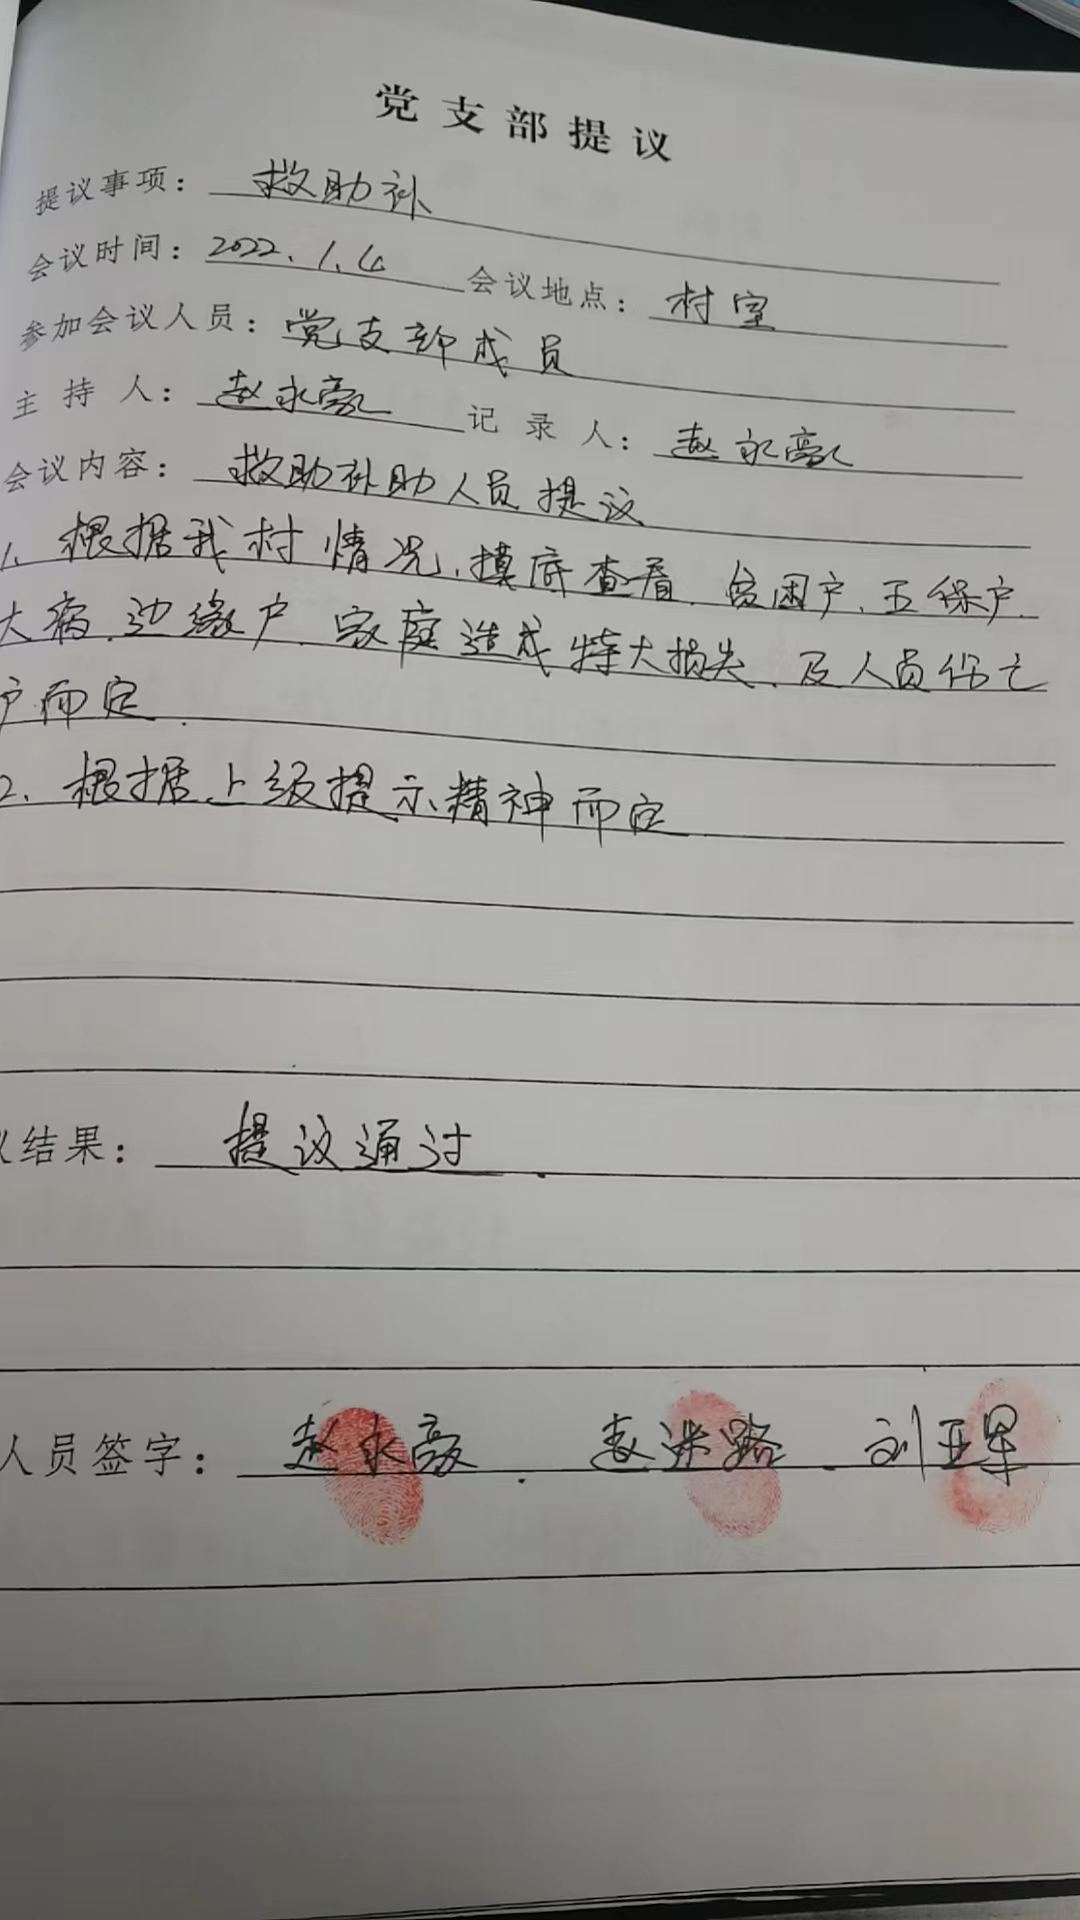 党支部提议
提议事项：救助补
会议时间：2022.1.4 会议地点：村室
参加会议人员：党支部成员
主持人：赵永豪 记录人：赵永豪
会议内容：救助补助人员提议
1.根据我村情况.摸底查看.贫困户.五保户.
大病.边缘户.家庭造成特大损失.及人员伤亡
户而定.
2.根据上级提示精神而定
议结果：提议通过.
人员签字：赵永豪.赵 路.刘亚军